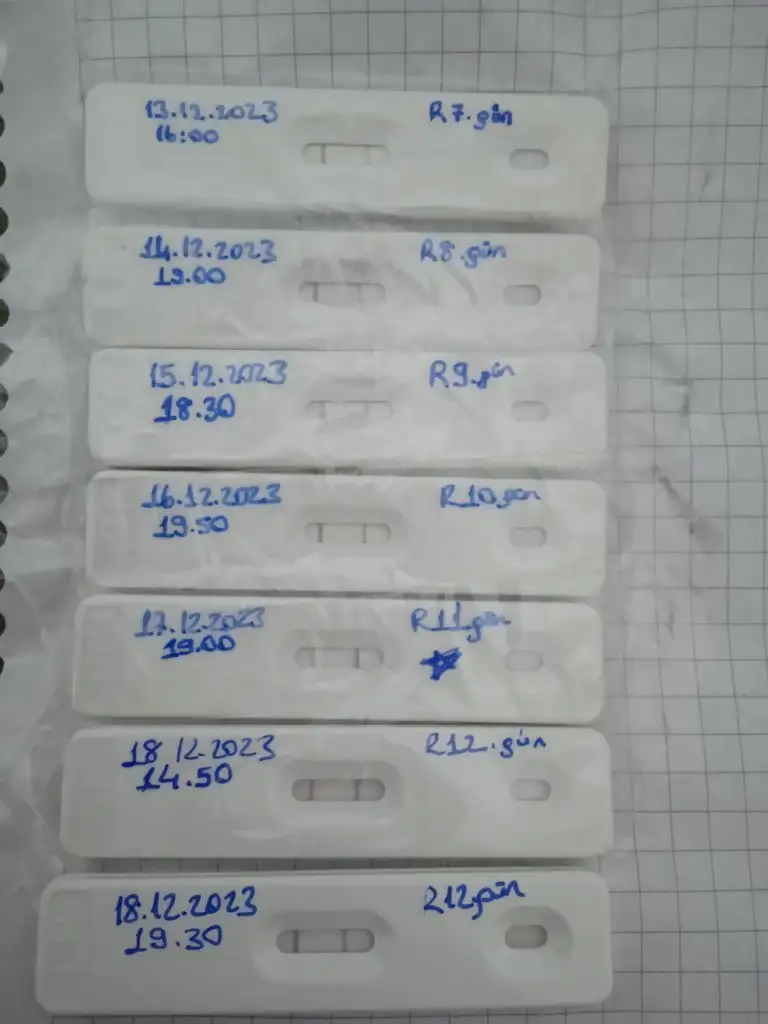 13.12.2023
16:00
R7.gün
14.12.2023
19.00
R8.gün
15.12.2023
18.30
R9.gün
16.12.2023
19.50
R10.gün
17.12.2023
19.00
R11.gün
18.12.2023
14.50
R12.gün
18.12.2023
19.30
R12.gün